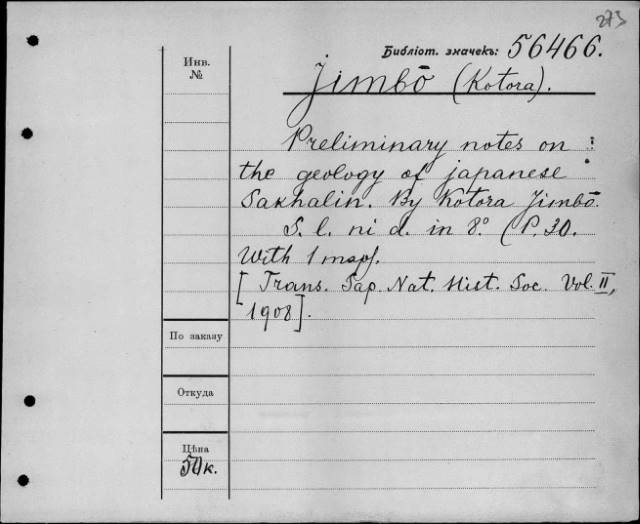 273
Библіот. значекъ: 56466.
Инв.
№
Jimbō (Kotora).
Preliminary notes on
the geology of japanese
Sakhalin. By Kotora Jimbō.
S. l. ni d. in 8º. (P. 30.
With 1 map).
[Trans. Sap. Nat. Hist. Soc. Vol. II,
1908].
По заказу
Откуда
Цѣна
50к.